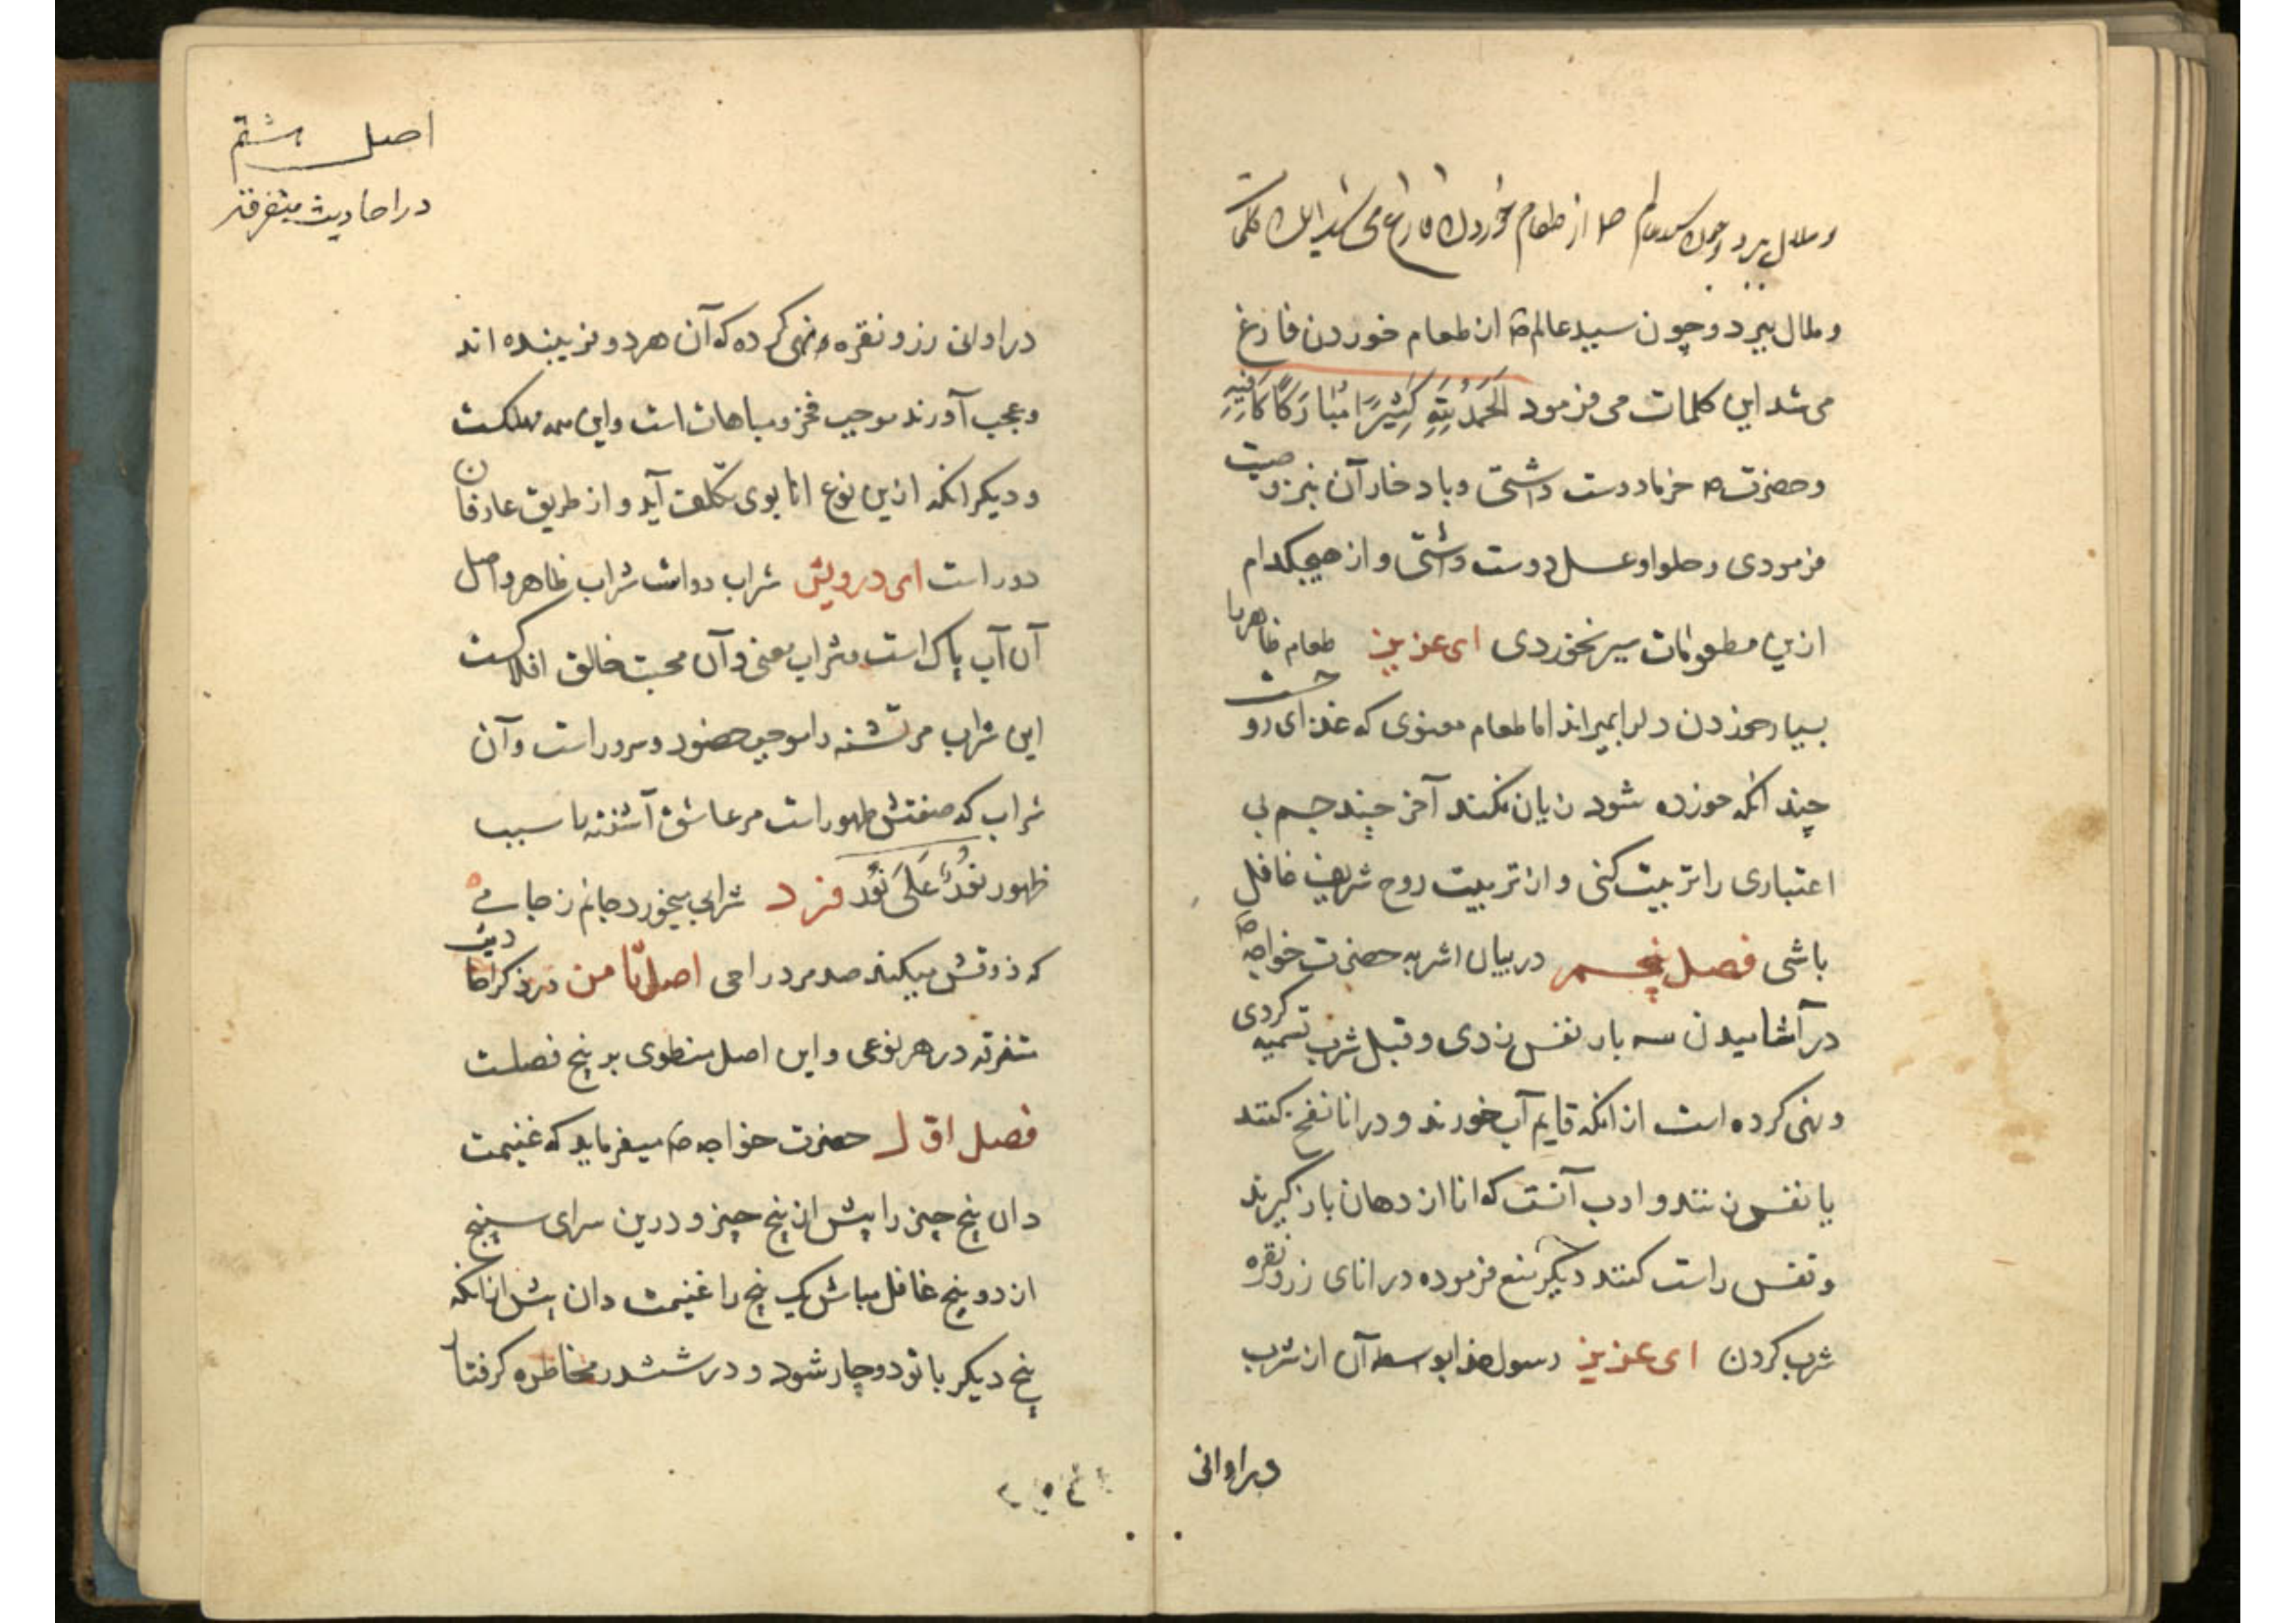 و ملال ببرد و چون سید عالم ص از طعام خوردن فارغ می شد این کلمات
و ملال ببرد و چون سید عالم ص از طعام خوردن فارغ
می شد این کلمات می فرمود اَلحَمدُ لِلّٰهِ کَثیرًا مُبَارَکًا کَافِیَهِ
و حضرت ص خرما دوست داشتی و باد خار آن نیز وصیت
فرمودی و حلوا و عسل دوست داشتی و از هیچکدام
ازین مطعومات سیر نخوردی ای عزیز طعام ظاهر را
بسیار خوردن دل را بمیراند اما طعام معنوی که غذای روحست
چند انکه خورده شود زیان نکند آخر چند جسم بی
اعتباری را تربیت کنی و از تربیت روح شریف غافل
باشی فصل پنجم در بیان اشربه حضرت خواجه ص
در آشامیدن سه بار نفس زدی و قبل شرب تسمیه کردی
و نهی کرده است از انکه قایم آب خورند و در انا نفخ کنند
یا نفس زنند و ادب آنست که انا از دهان باز گیرند
و نفس راست کنند دیگر منع فرموده در انای زر و نقره
شرب کردن ای عزیز رسول خدا بوسطه آن از شرب
در اوانی
اصل هشتم
در احادیث متفرقه
در اوانی زر و نقره نهی کرده که آن هر دو فریبنده اند
و عجب آورند موجب فخر و مباهات است و این همه مهلکست
و دیگر انکه ازین نوع انا بوی تکلف آید و از طریق عارفان
دور است ای درویش شراب دواست شراب ظاهر و اصل
آن آب پاک است و شراب معنی و آن محبت خالق افلاکست
این شراب مر تشنه را موجب حضور و سرور است و آن
شراب که صفتش طهور است مر عاشق آشفته را سبب
ظهور نُورٌ عَلَی نُور فرد شرابی میخورد جانم ز جامی
که ذوقش میکند صد مرد را حی اصل ثامن در ذکر احادیث
متفرقه در هر نوعی و این اصل منطوی بر پنج فصلست
فصل اول حضرت خواجه ص میفرماید که غنیمت
دان پنج چیز را پیش از پنج چیز و درین سرای سپنج
از دو پنج غافل مباش یک پنج را غنیمت دان پیش از انکه
پنج دیگر با تو دوچار شود و در ششدر مخاطره گرفتار